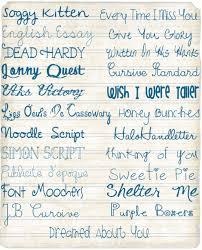 Soggy Kitten Every Time I Miss You
English Essay Give You Glory
DEAD HARDY Written In His Hands
Jonny Quest Cursive Standard
Uks Victory Wish I Were Taller
Lges Ours De Cassowary Honey Bunches
Noodle Script HaloHandletter
SIMON SCRIPT thinking of you
Publicité d'époque Sweetie Pie
Font Moochers Shelter Me
J.B Cursive Purple Boxers
Dreamed About You